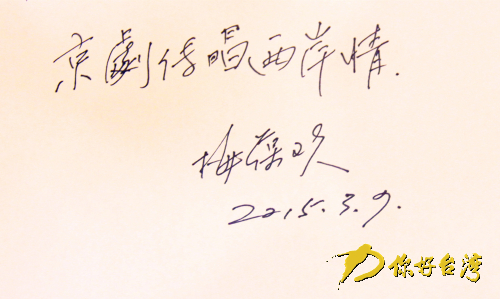 京劇传唱两岸情.
梅葆玖
2015.3.9.
你好台湾